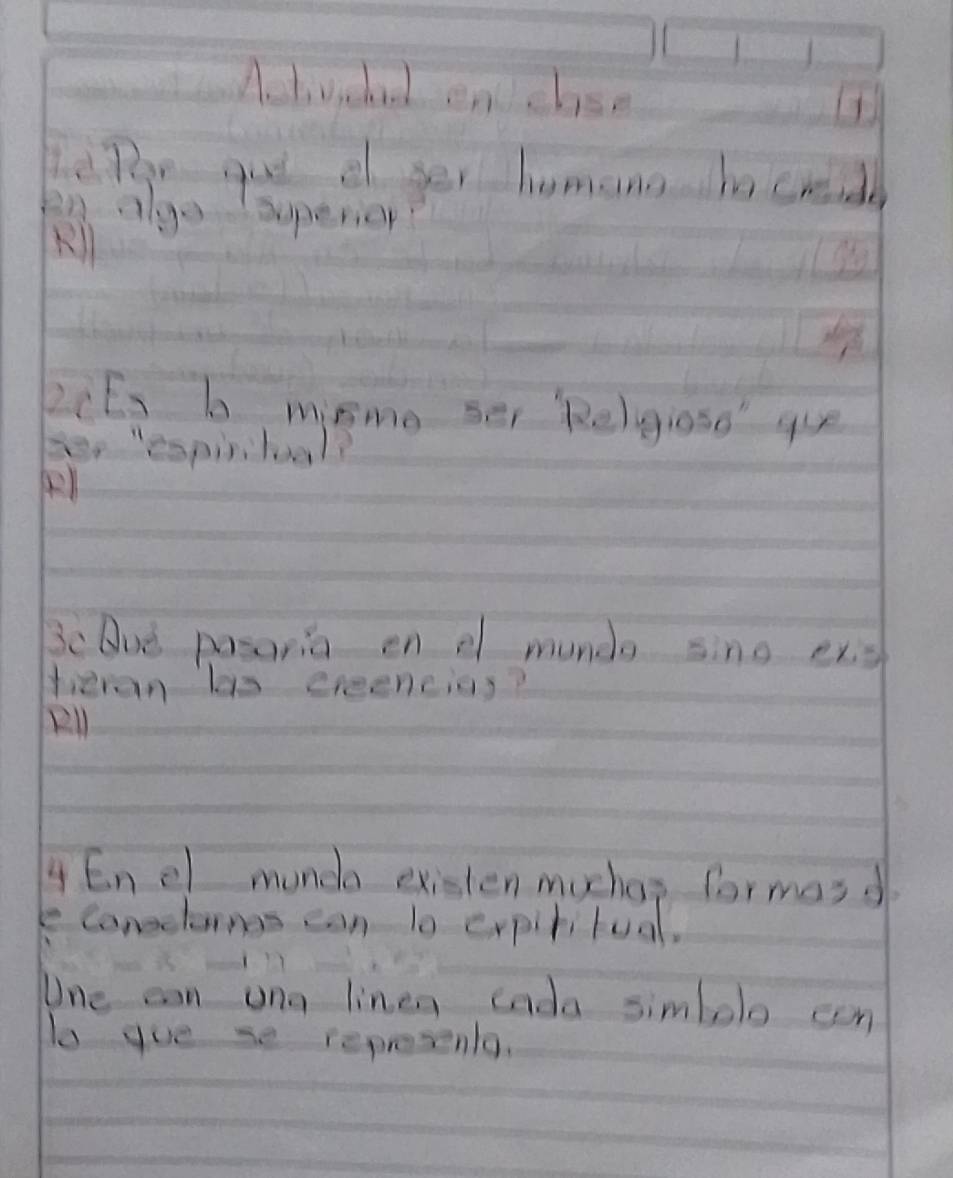 Actividad en clase
1. ¿Por qué el ser humano ha creido
en algo superior?
R//
2 ¿Es lo mismo ser "Religioso" que
ser "espiritual?
R//
3 ¿Qué pasaría en el mundo sino exis
tieran las creencias?
R//
4 En el mundo existen muchas formas d
e conectarnos con lo expiritual.
Une con una linea cada simbolo con
lo que se representa.